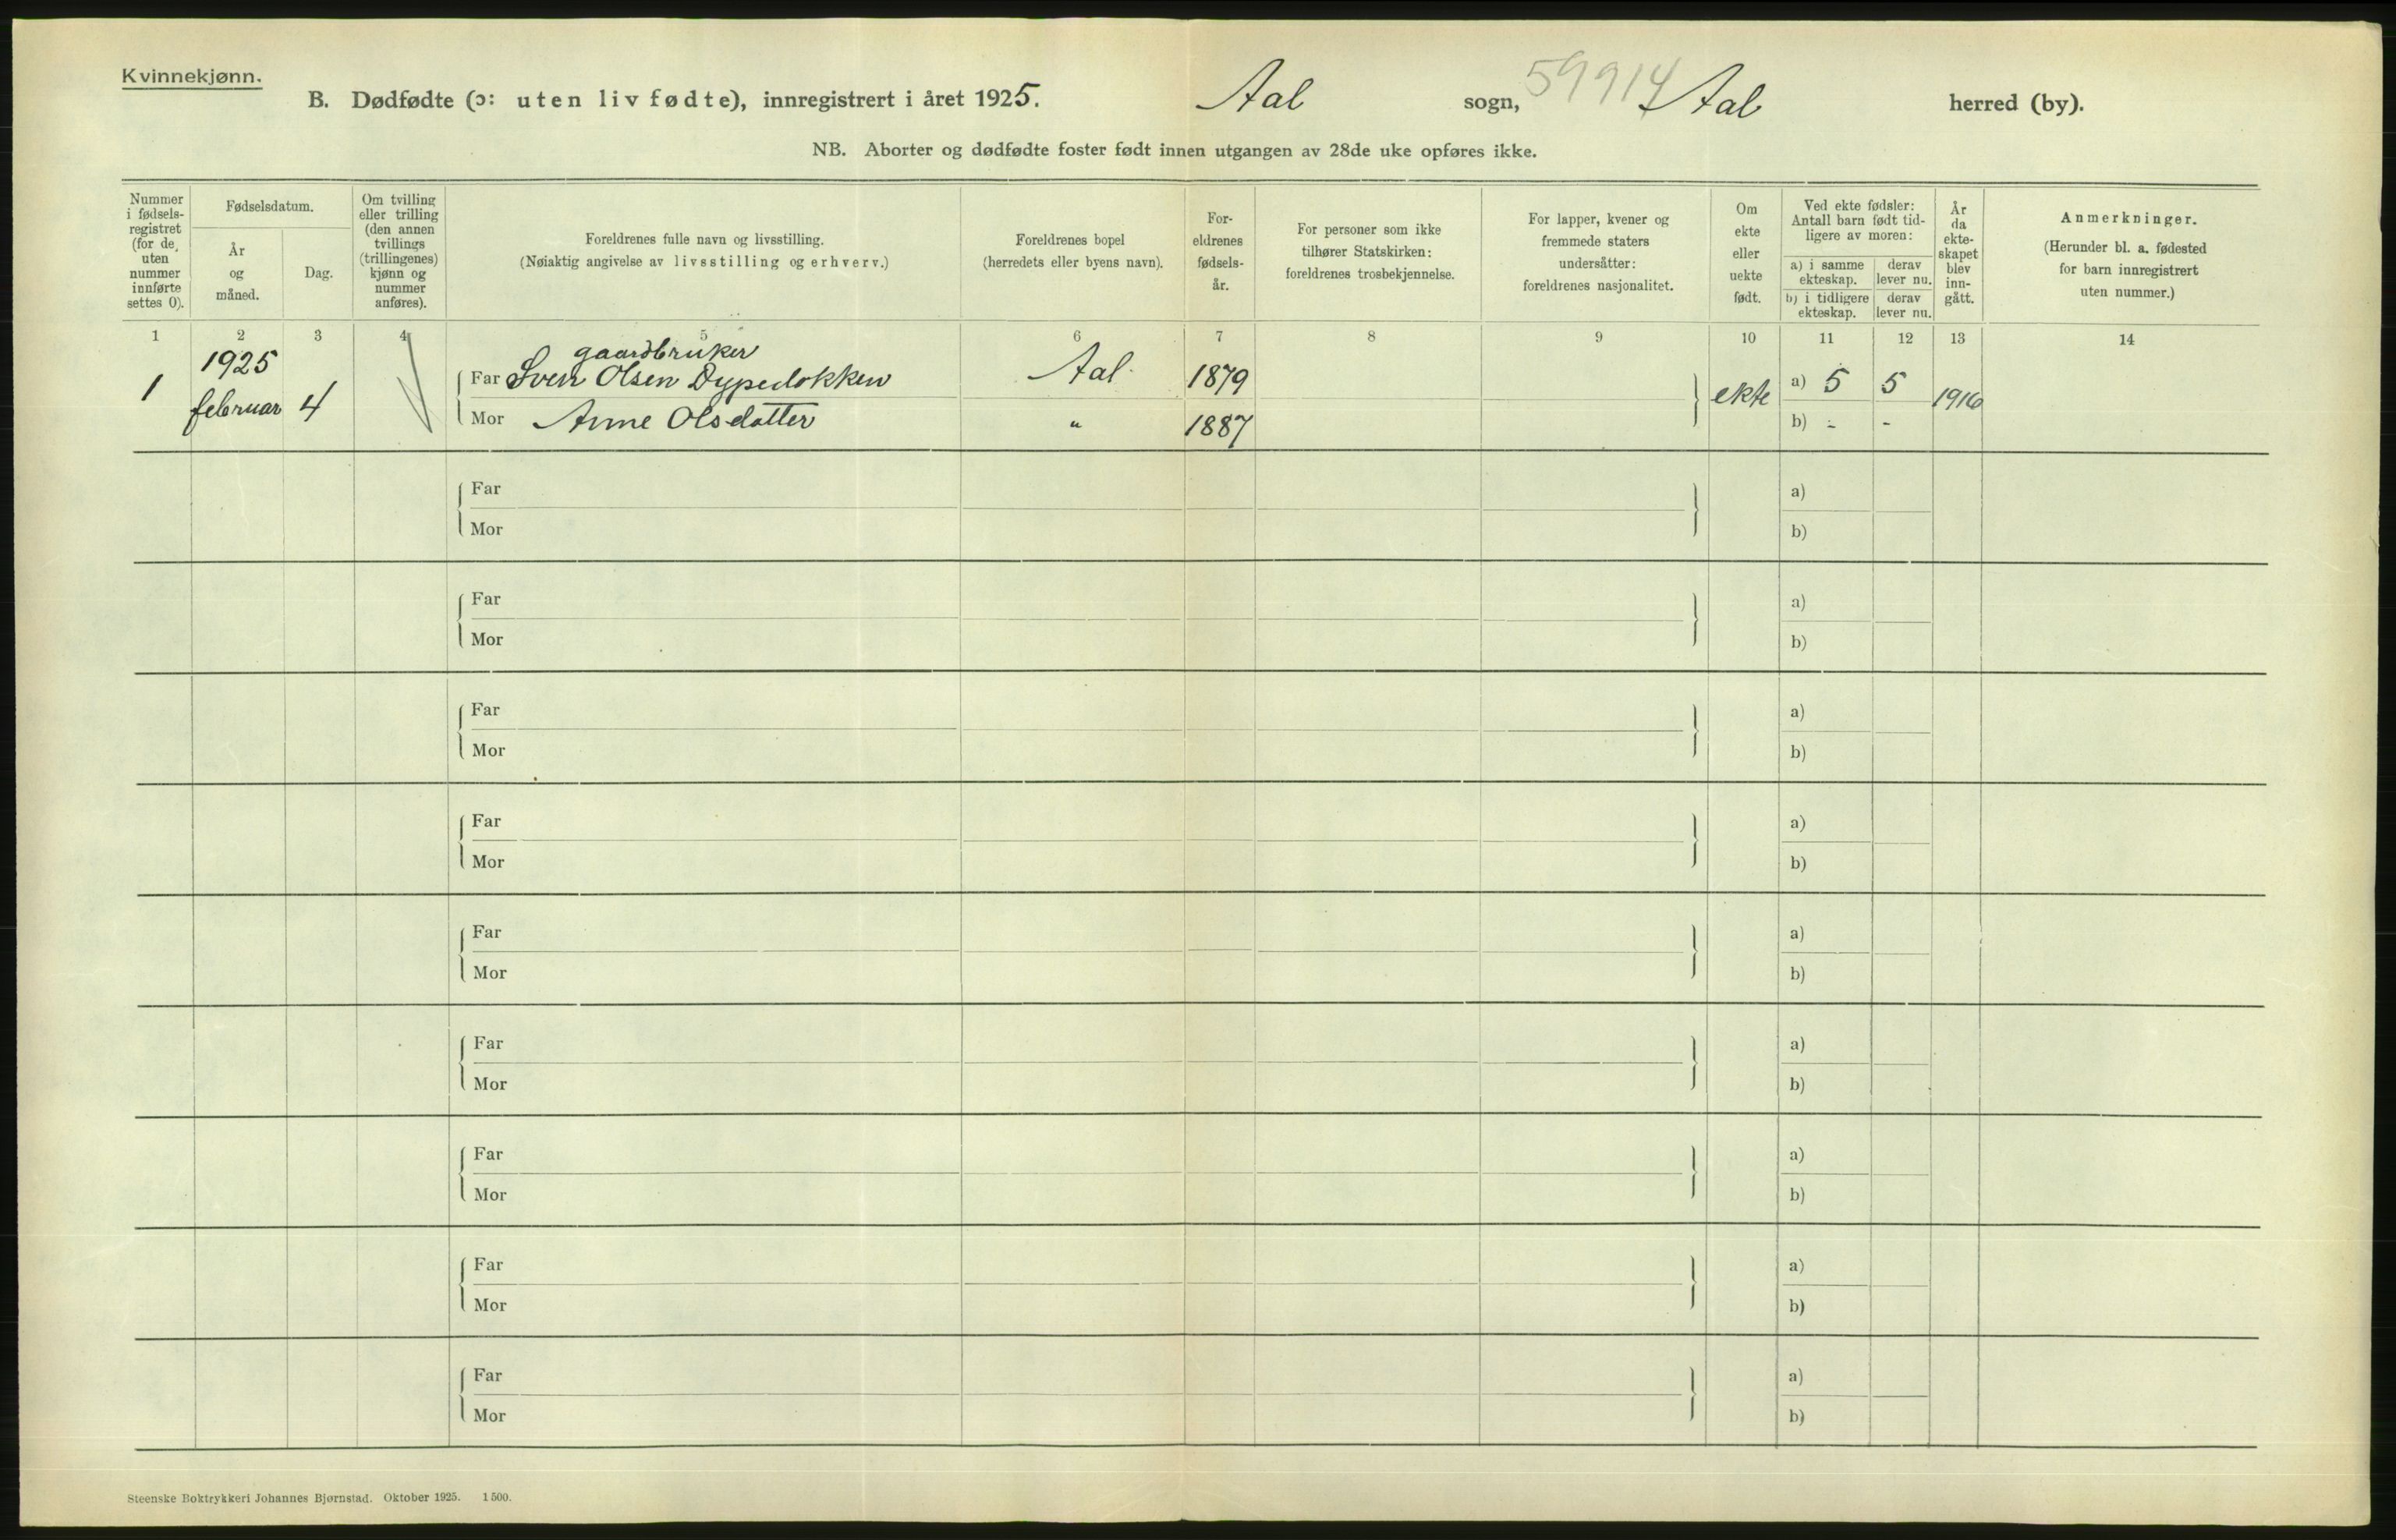 Kvinnekjønn.
B. Dødfødte (ɔ: uten liv fødte), innregistrert i året 1925. Aal sogn, 59914 Aal herred (by).
NB. Aborter og dødfødte foster født innen utgangen av 28de uke opføres ikke.
Nummer
i fødsels-
registret
(for de
uten
nummer
innførte
settes 0).
Fødselsdatum.
År
og
måned.
Dag.
Om tvilling
eller trilling
(den annen
tvillings
(trillingenes)
kjønn og
nummer
anføres).
Foreldrenes fulle navn og livsstilling.
(Nøiaktig angivelse av livsstilling og erhverv.)
Foreldrenes bopel
(herredets eller byens navn).
For-
eldrenes
fødsels-
år.
For personer som ikke
tilhører Statskirken:
foreldrenes trosbekjennelse.
For lapper, kvener og
fremmede staters
undersåtter:
foreldrenes nasjonalitet.
Om
ekte
eller
uekte
født.
Ved ekte fødsler:
Antall barn født tid-
ligere av moren:
a) i samme
ekteskap.
derav
lever nu.
b) i tidligere
ekteskap.
derav
lever nu.
År
da
ekte-
skapet
blev
inn-
gått.
Anmerkninger.
(Herunder bl. a. fødested
for barn innregistrert
uten nummer.)
1 2 3 4 5 6 7 8 9 10 11 12 13 14
1925
gaardbruker
1 februar 4
Far Sven Olsen Dypedokken Aal 1879 ekte a) 5 5 1916
Mor Anne Olsdatter " 1887 b) - -
Far a)
Mor b)
Far a)
Mor b)
Far a)
Mor b)
Far a)
Mor b)
Far a)
Mor b)
Far a)
Mor b)
Far a)
Mor b)
Far a)
Mor b)
Far a)
Mor b)
Steenske Boktrykkeri Johannes Bjørnstad. Oktober 1925. 1500.